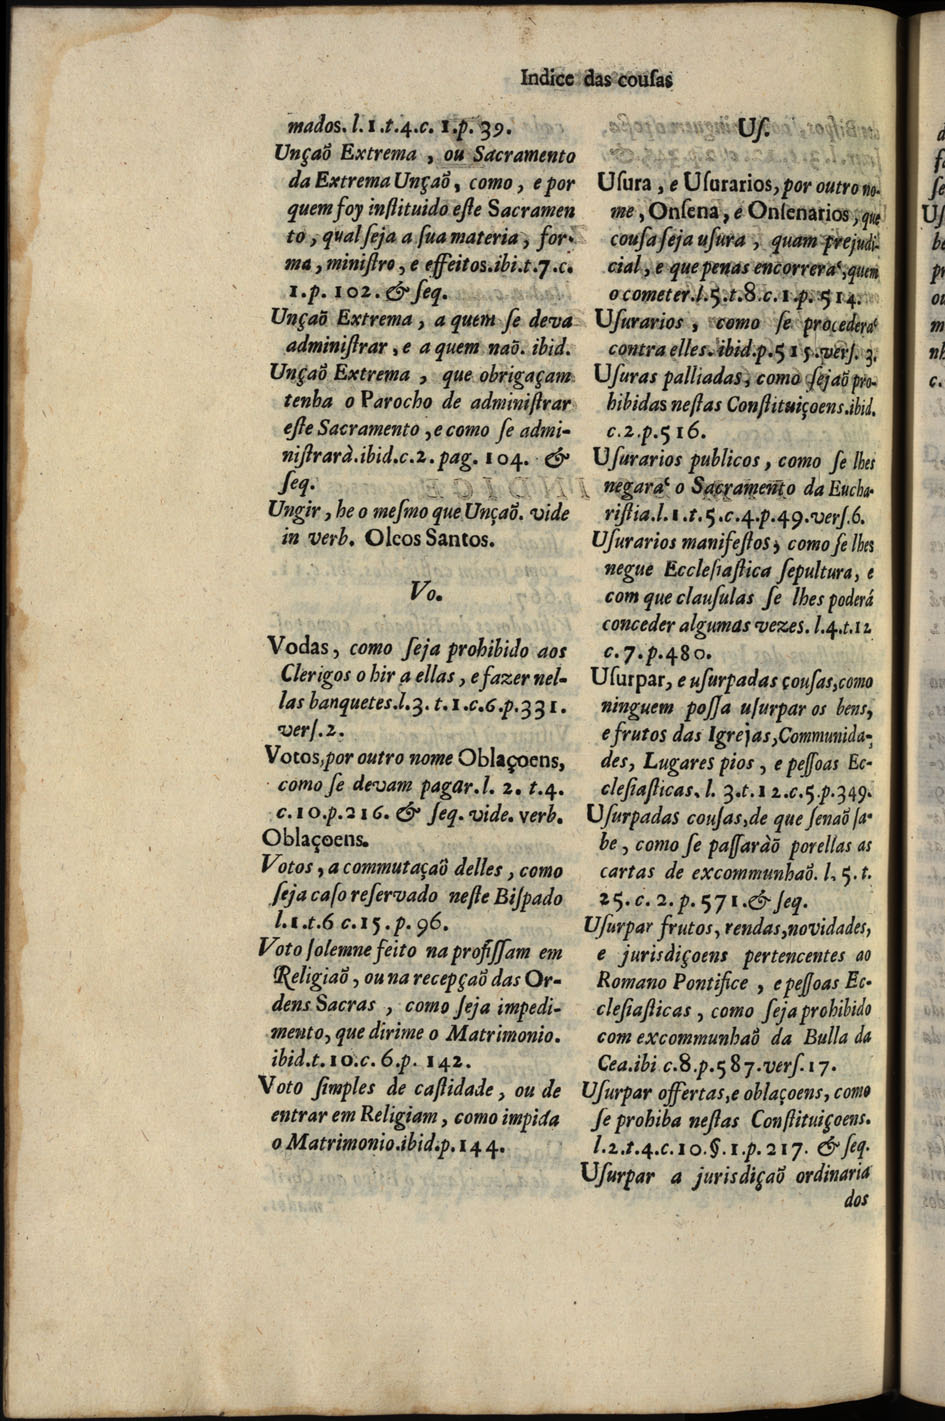 Indice das couſas
mados. l. 1. t. 4. c. 1. p. 39.
Unçaõ Extrema, ou Sacramento
da Extrema Unçaõ, como, e por
quem foy inſtituido eſte Sacramen
to, qual ſeja a ſua materia, for-
ma, miniſtro, e effeitos. ibi. t. 7. c.
1. p. 102. & ſeq.
Unçaõ Extrema, a quem ſe deva
adminiſtrar, e a quem naõ. ibid.
Unçaõ Extrema, que obrigaçam
tenha o Parocho de adminiſtrar
eſte Sacramento, e como ſe admi-
niſtrarà. ibid. c. 2. pag. 104. &
ſeq.
Ungir, he o meſmo que Unçaõ. vide
in verb. Oleos Santos.
Vo.
Vodas, como ſeja prohibido aos
Clerigos o hir a ellas, e fazer nel-
las banquetes. l. 3. t. 1. c. 6. p. 331.
verſ. 2.
Votos, por outro nome Oblaçoens,
como ſe devam pagar. l. 2. t. 4.
c. 10. p. 216. & ſeq. vide. verb.
Oblaçoens.
Votos, a commutaçaõ delles, como
ſeja caſo reſervado neſte Biſpado
l. 1. t. 6 c. 15. p. 96.
Voto ſolemne feito na profiſſam em
Religiaõ, ou na recepçaõ das Or-
dens Sacras, como ſeja impedi-
mento, que dirime o Matrimonio.
ibid. t. 10. c. 6. p. 142.
Voto ſimples de caſtidade, ou de
entrar em Religiam, como impida
o Matrimonio. ibid. p. 144.
Uſ.
Uſura, e Uſurarios, por outro no-
me, Onſena, e Onſenarios, que
couſa ſeja uſura, quam prejudi-
cial, e que penas encorrerá, quem
o cometer. l. 5. t. 8. c. 1. p. 514.
Uſurarios, como ſe procederá
contra elles. ibid. p. 515. verſ. 3.
Uſuras palliadas, como ſejaõ pro-
hibidas neſtas Conſtituiçoens. ibid.
c. 2. p. 516.
Uſurarios publicos, como ſe lhes
negará o Sacramento da Eucha-
riſtia. l. 1. t. 5. c. 4. p. 49. verſ. 6.
Uſurarios manifeſtos, como ſe lhes
negue Eccleſiaſtica ſepultura, e
com que clauſulas ſe lhes poderá
conceder algumas vezes. l. 4. t. 12
c. 7. p. 480.
Uſurpar, e uſurpadas çouſas, como
ninguem poſſa uſurpar os bens,
e frutos das Igrejas, Communida-
des, Lugares pios, e peſſoas Ec-
cleſiaſticas. l. 3. t. 12. c. 5. p. 349.
Uſurpadas couſas, de que ſenaõ ſa-
be, como ſe paſſaràõ por ellas as
cartas de excommunhaõ. l. 5. t.
25. c. 2. p. 571. & ſeq.
Uſurpar frutos, rendas, novidades,
e jurisdiçoens pertencentes ao
Romano Pontifice, e peſſoas Ec-
cleſiaſticas, como ſeja prohibido
com excommunhaõ da Bulla da
Cea. ibi c. 8. p. 587. verſ. 17.
Uſurpar offertas, e oblaçoens, como
ſe prohiba neſtas Conſtituiçoens.
l. 2. t. 4. c. 10. §. 1. p. 217. & ſeq.
Uſurpar a jurisdiçaõ ordinaria
dos